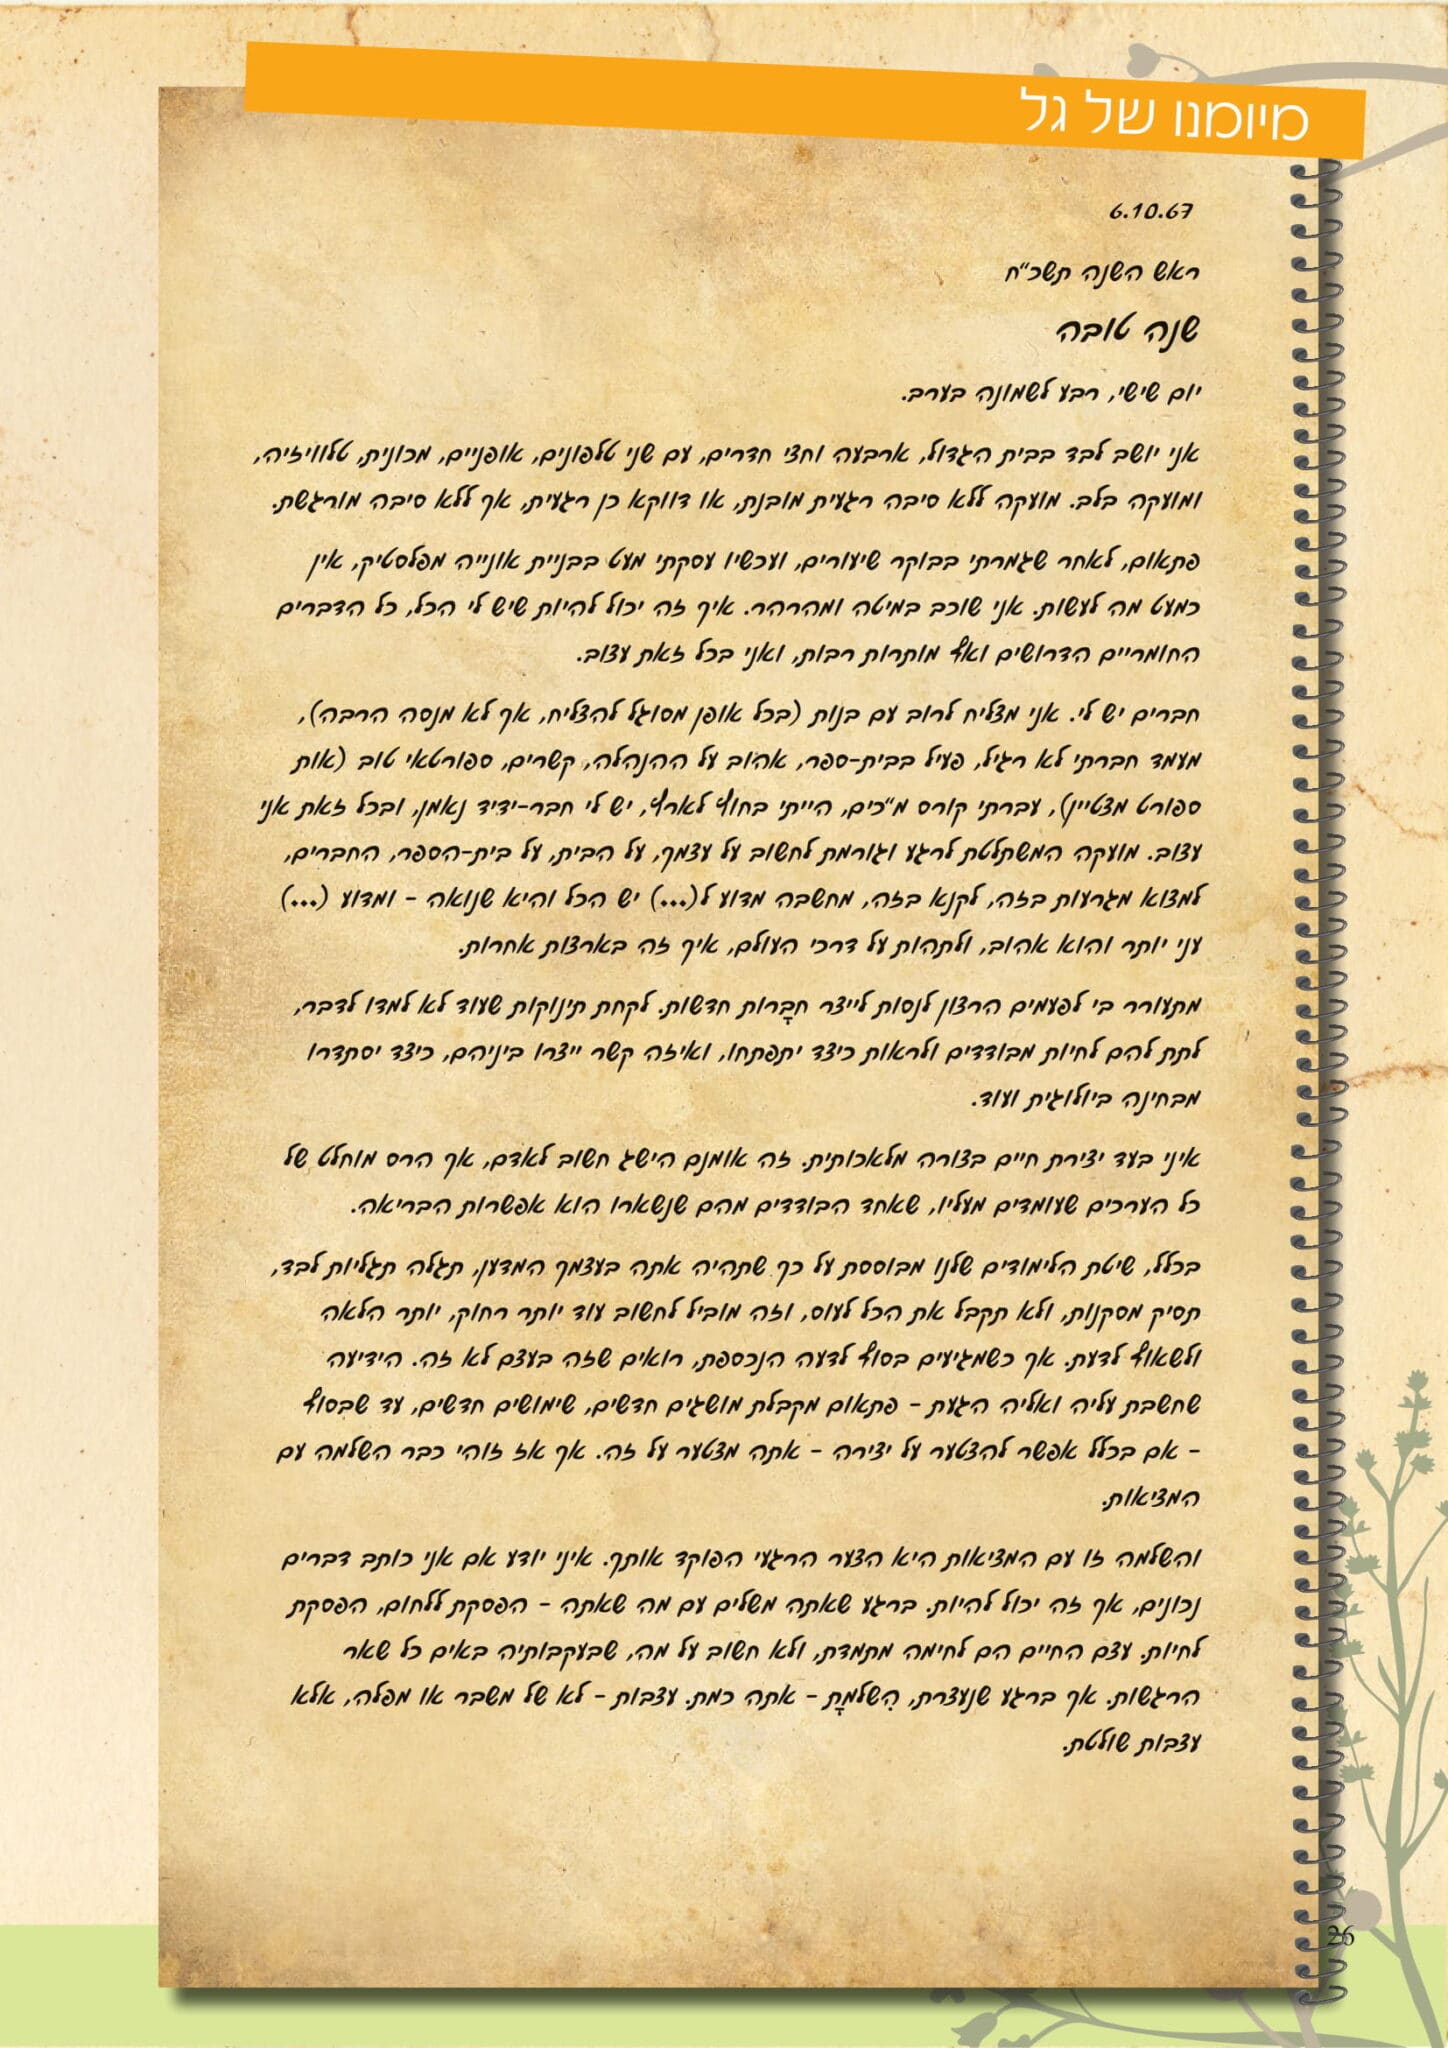 מיומנו של גל
6.10.67
ראש השנה תשכ"ח
שנה טובה
יום שישי, רבע לשמונה בערב.
אני יושב לבד בבית הגדול, ארבעה וחצי חדרים, עם שני טלפונים, אופניים, מכונית, טלוויזיה,
ומועקה בלב. מועקה ללא סיבה רגעית מובנת, או דווקא כן רגעית, אך ללא סיבה מורגשת.
פתאום, לאחר שגמרתי בבוקר שיעורים, ועכשיו עסקתי מעט בבניית אונייה מפלסטיק, אין
כמעט מה לעשות. אני שוכב במיטה ומהרהר. איך זה יכול להיות שיש לי הכל, כל הדברים
החומריים הדרושים ואף מותרות רבות, ואני בכל זאת עצוב.
חברים יש לי. אני מצליח לרוב עם בנות (בכל אופן מסוגל להצליח, אך לא מנסה הרבה),
מעמד חברתי לא רגיל, פעיל בבית-ספר, אהוב על ההנהלה, קשרים, ספורטאי טוב (אות
ספורט מצטיין), עברתי קורס מ"כים, הייתי בחוץ לארץ, יש לי חבר-ידיד נאמן, ובכל זאת אני
עצוב. מועקה המשתלטת לרגע וגורמת לחשוב על עצמך, על הבית, על בית-הספר, החברים,
למצוא מגרעות בזה, לקנא בזה, מחשבה מדוע ל(...) יש הכל והיא שנואה - ומדוע (...)
עני יותר והוא אהוב, ולתהות על דרכי העולם, איך זה בארצות אחרות.
מתעורר בי לפעמים הרצון לנסות לייצר חבָרות חדשות. לקחת תינוקות שעוד לא למדו לדבר,
לתת להם לחיות מבודדים ולראות כיצד יתפתחו, ואיזה קשר ייצרו ביניהם, כיצד יסתדרו
מבחינה ביולוגית ועוד.
איני בעד יצירת חיים בצורה מלאכותית. זה אומנם הישג חשוב לאדם, אך הרס מוחלט של
כל הערכים שעומדים מעליו, שאחד הבודדים מהם שנשארו הוא אפשרות הבריאה.
בכלל, שיטת הלימודים שלנו מבוססת על כך שתהיה אתה בעצמך המדען, תגלה תגליות לבד,
תסיק מסקנות, ולא תקבל את הכל לעוס, וזה מוביל לחשוב עוד יותר רחוק, יותר הלאה
ולשאוף לדעת. אך כשמגיעים בסוף לדעה הנכספת, רואים שזה בעצם לא זה. הידיעה
שחשבת עליה ואליה הגעת - פתאום מקבלת מושגים חדשים, שימושים חדשים, עד שבסוף
- אם בכלל אפשר להצטער על יצירה - אתה מצטער על זה. אך אז זוהי כבר השלמה עם
המציאות.
והשלמה זו עם המציאות היא הצער הרגעי הפוקד אותך. איני יודע אם אני כותב דברים
נכונים, אך זה יכול להיות. ברגע שאתה משלים עם מה שאתה - הפסקת ללחום, הפסקת
לחיות. עצם החיים הם לחימה מתמדת, ולא חשוב על מה, שבעקבותיה באים כל שאר
הרגשות. אך ברגע שנעצרת, הִשלמתָ - אתה כמת. עצבות - לא של משבר או מפלה, אלא
עצבות שולטת.
26